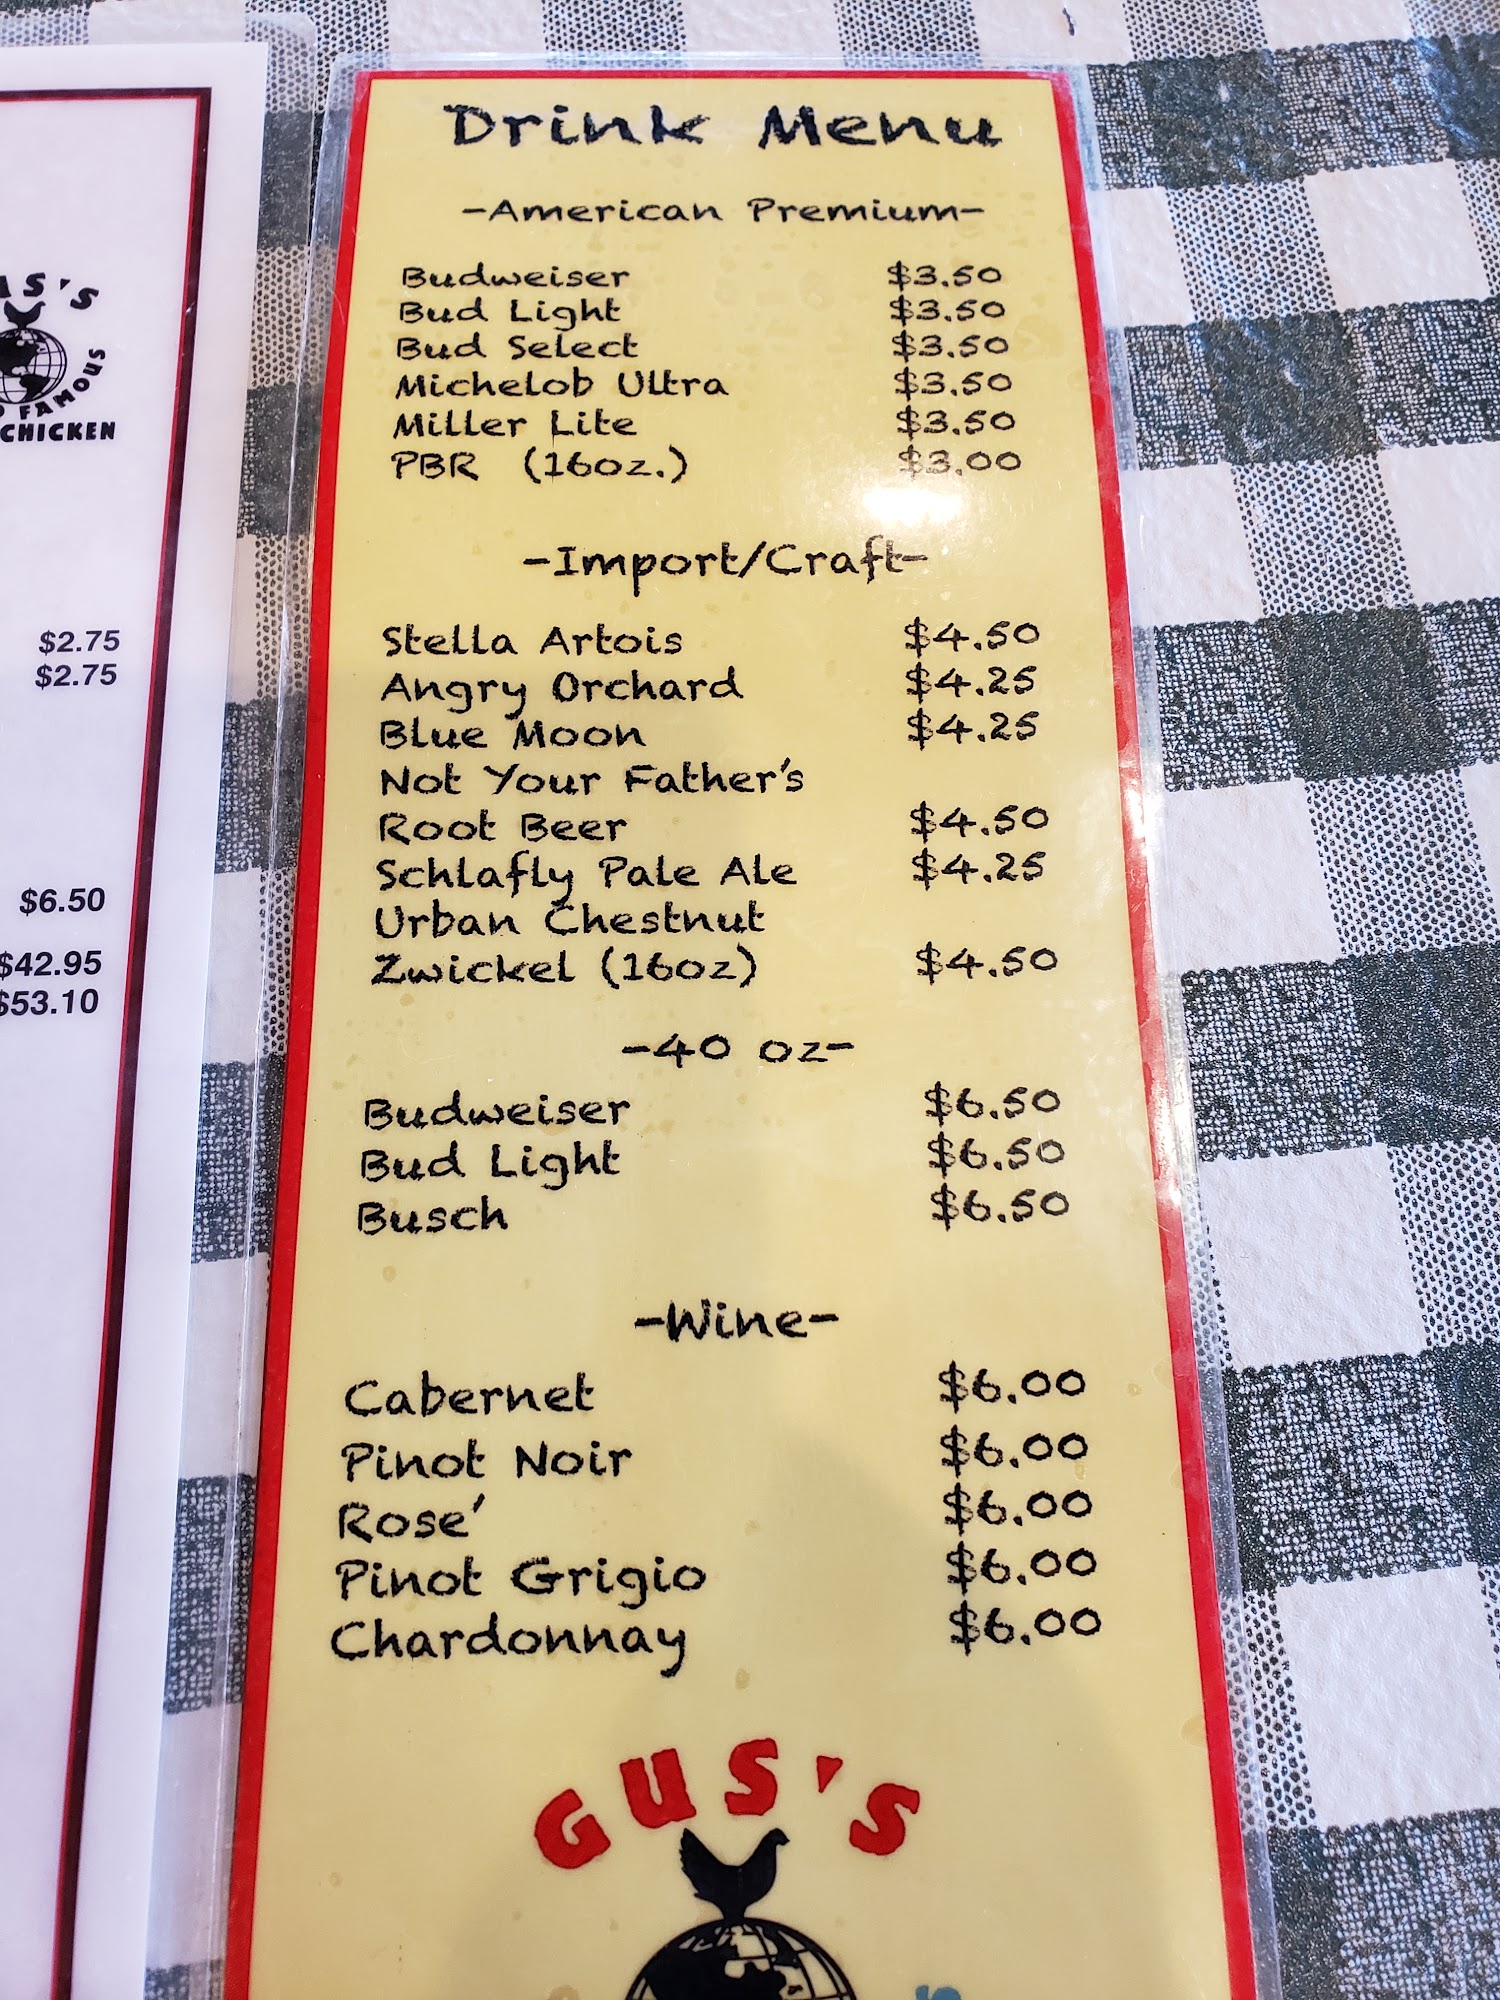 Drink Menu
-American Premium-
Budweiser $3.50
Bud Light $3.50
Bud Select $3.50
Michelob Ultra $3.50
Miller Lite $3.50
PBR (16oz.) $3.00
-Import/Craft-
Stella Artois $4.50
Angry Orchard $4.25
Blue Moon $4.25
Not Your Father's
Root Beer $4.50
Schlafly Pale Ale $4.25
Urban Chestnut
Zwickel (16oz) $4.50
-40 oz-
Budweiser $6.50
Bud Light $6.50
Busch $6.50
-Wine-
Cabernet $6.00
Pinot Noir $6.00
Rose' $6.00
Pinot Grigio $6.00
Chardonnay $6.00
GUS'S
FAMOUS
CHICKEN
$2.75
$2.75
$6.50
$42.95
$53.10